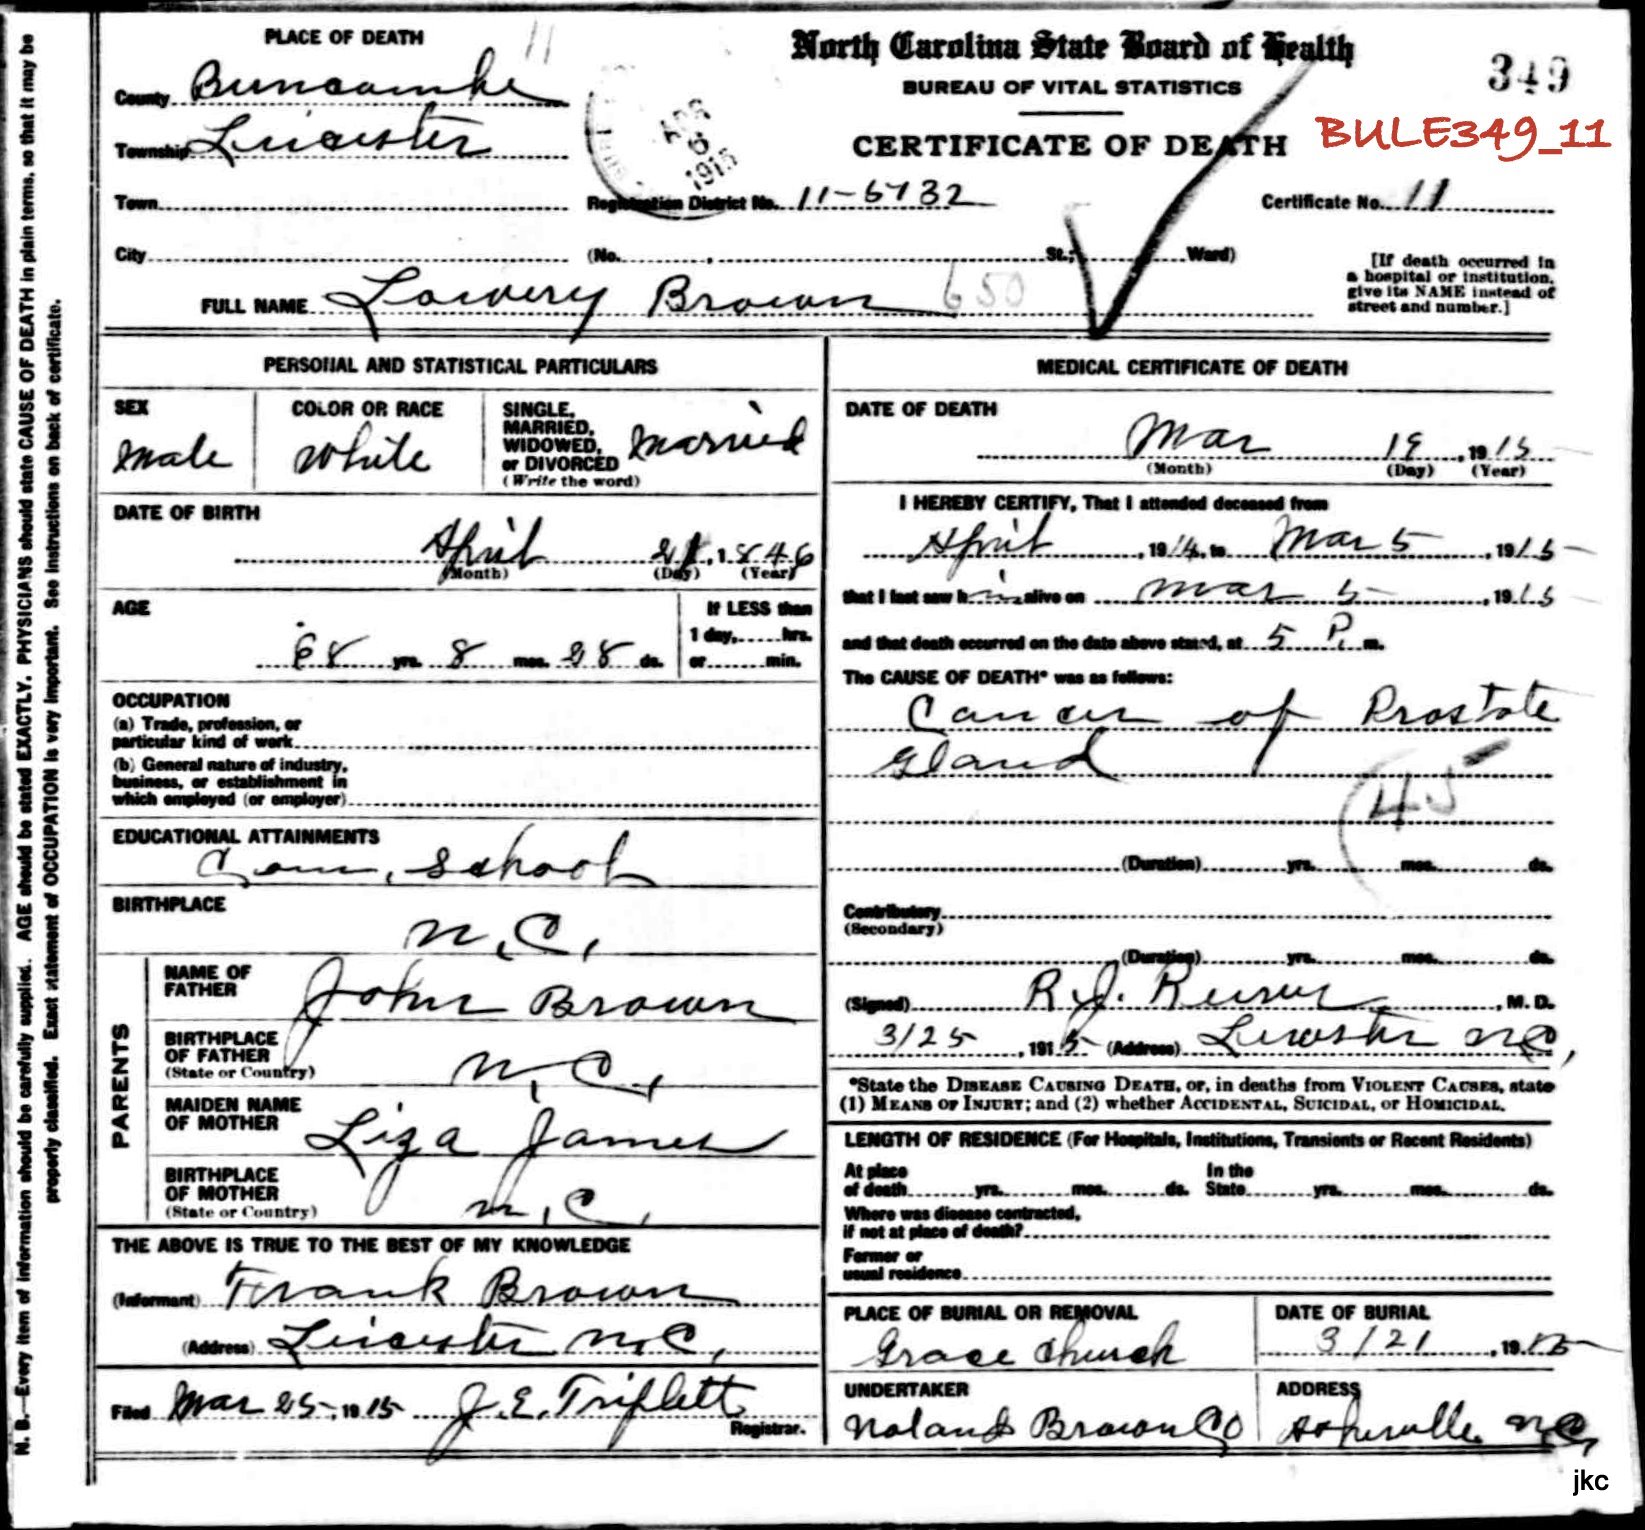 PLACE OF DEATH
11
County Buncombe
Township Leicester
Town
City
North Carolina State Board of Health
BUREAU OF VITAL STATISTICS
CERTIFICATE OF DEATH
349
BULE349_11
APR
6
1915
Registration District No. 11-5732
Certificate No. 11
(No. St.; Ward)
[If death occurred in
a hospital or institution,
give its NAME instead of
street and number.]
FULL NAME Lowery Brown 650
PERSONAL AND STATISTICAL PARTICULARS
SEX
Male
COLOR OR RACE
White
SINGLE,
MARRIED,
WIDOWED,
or DIVORCED
(Write the word)
Married
DATE OF BIRTH
April 21, 1846
(Month) (Day) (Year)
AGE
68 yrs. 8 mos. 28 ds.
If LESS than
1 day, hrs.
or min.
OCCUPATION
(a) Trade, profession, or
particular kind of work
(b) General nature of industry,
business, or establishment in
which employed (or employer)
EDUCATIONAL ATTAINMENTS
Com. School
BIRTHPLACE
N.C.
PARENTS
NAME OF
FATHER
John Brown
BIRTHPLACE
OF FATHER
(State or Country)
N.C.
MAIDEN NAME
OF MOTHER
Liza James
BIRTHPLACE
OF MOTHER
(State or Country)
N.C.
THE ABOVE IS TRUE TO THE BEST OF MY KNOWLEDGE
(Informant) Frank Brown
(Address) Leicester N.C.
Filed Mar 25, 1915 J.E. Triplett
Registrar.
MEDICAL CERTIFICATE OF DEATH
DATE OF DEATH
Mar 19, 1915
(Month) (Day) (Year)
I HEREBY CERTIFY, That I attended deceased from
April, 1914, to Mar 5, 1915
that I last saw him alive on Mar 5, 1915
and that death occurred on the date above stated, at 5 P. m.
The CAUSE OF DEATH* was as follows:
Cancer of Prostate
Gland
45
(Duration) yrs. mos. ds.
Contributory
(Secondary)
(Duration) yrs. mos. ds.
(Signed) R.J. , M. D.
3/25, 1915 (Address) Leicester N.C.
*State the DISEASE CAUSING DEATH, or, in deaths from VIOLENT CAUSES, state
(1) MEANS OF INJURY; and (2) whether ACCIDENTAL, SUICIDAL, or HOMICIDAL.
LENGTH OF RESIDENCE (For Hospitals, Institutions, Transients or Recent Residents)
At place
of death yrs. mos. ds.
In the
State yrs. mos. ds.
Where was disease contracted,
if not at place of death?
Former or
usual residence
PLACE OF BURIAL OR REMOVAL
Grace Church
DATE OF BURIAL
3/21, 1915
UNDERTAKER
Noland Brown Co
ADDRESS
Asheville N.C.
N. B.—Every item of information should be carefully supplied. AGE should be stated EXACTLY. PHYSICIANS should state CAUSE OF DEATH in plain terms, so that it may be
properly classified. Exact statement of OCCUPATION is very important. See instructions on back of certificate.
jkc